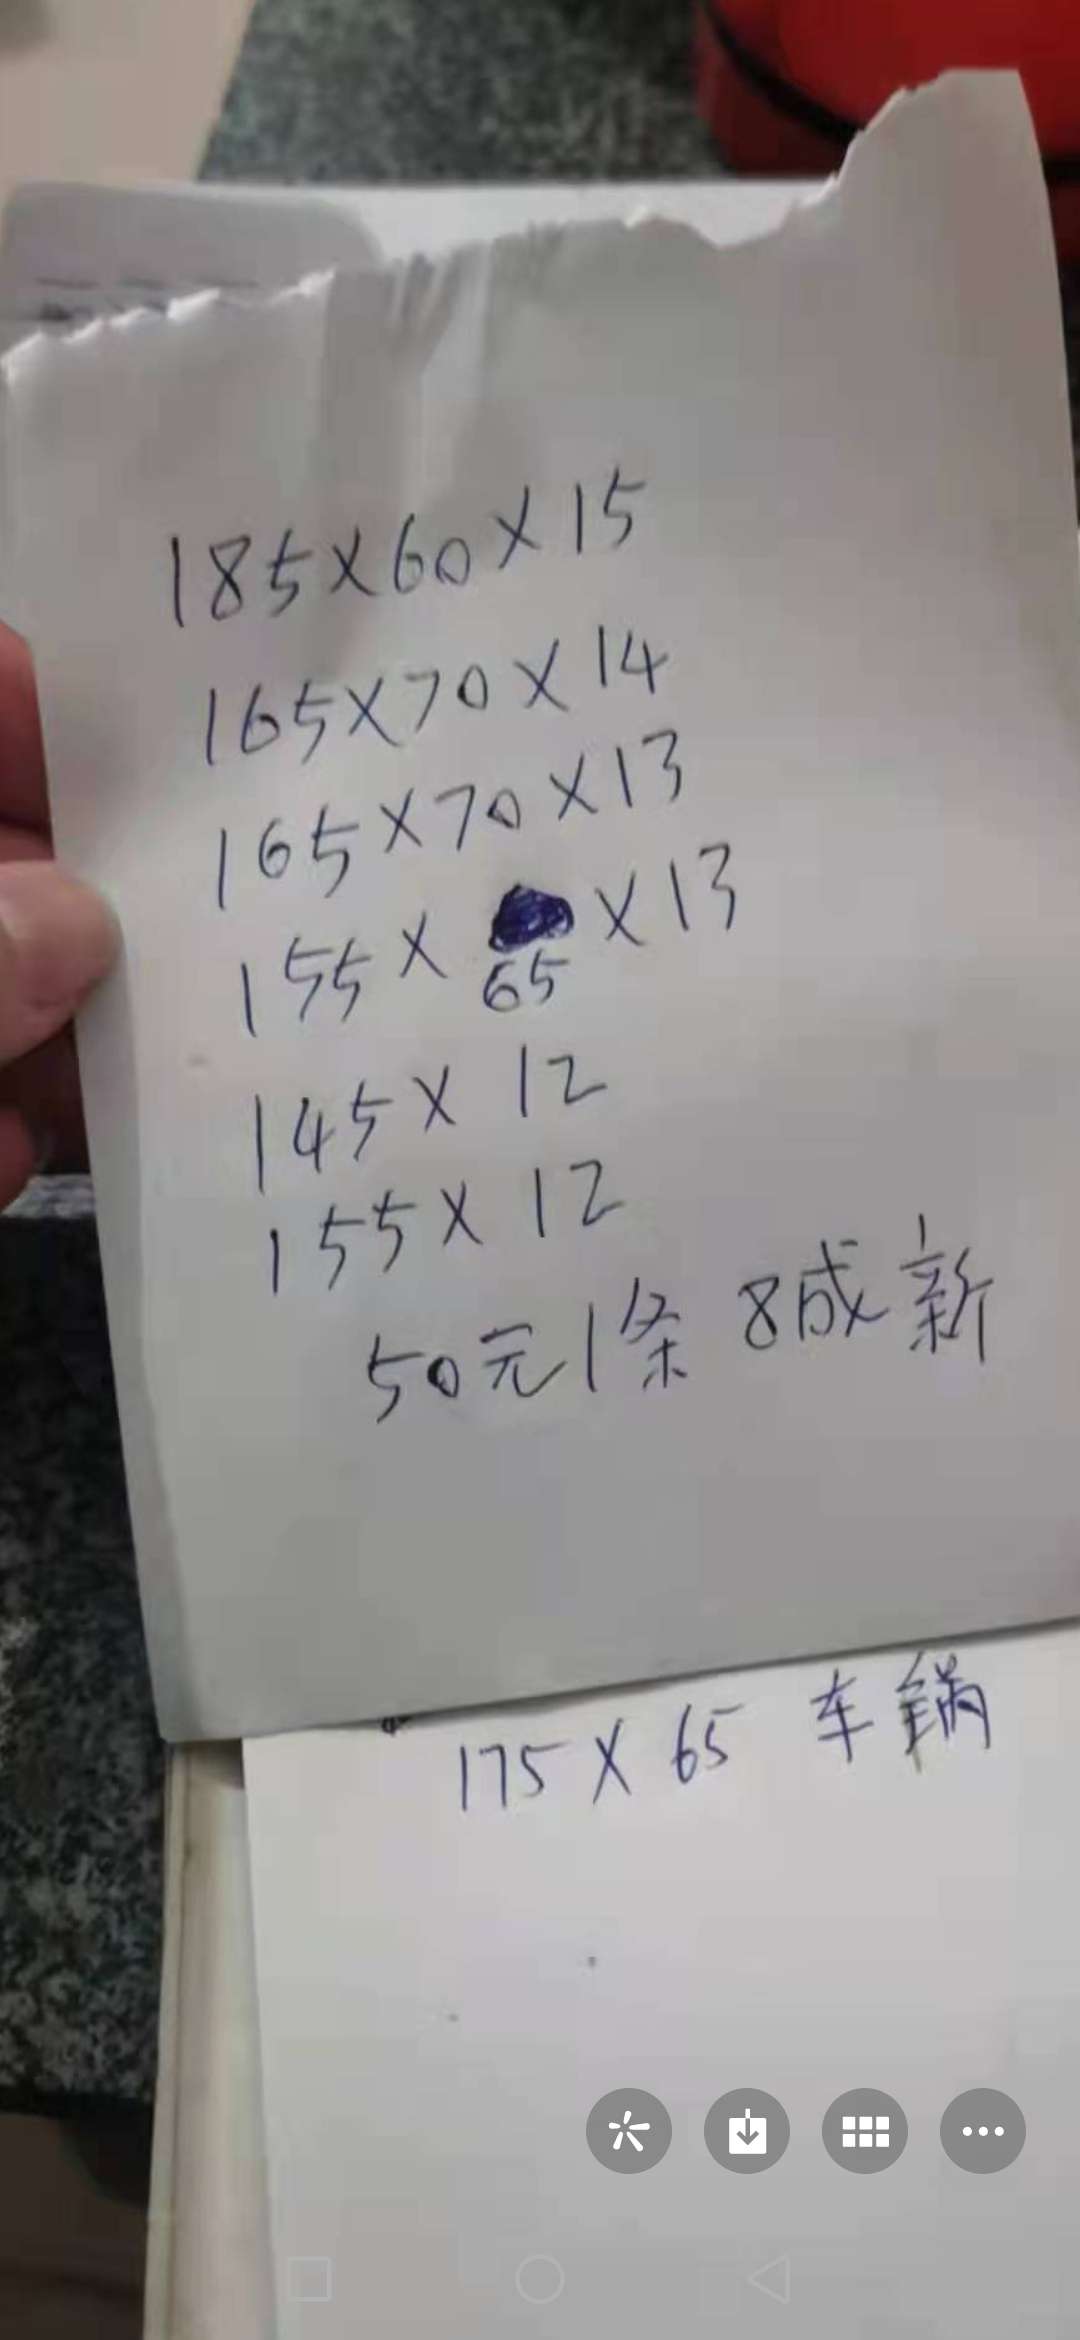 185×60×15
165×70×14
165×70×13
155×65×13
145×12
155×12
50元1条 8成新
175×65 车